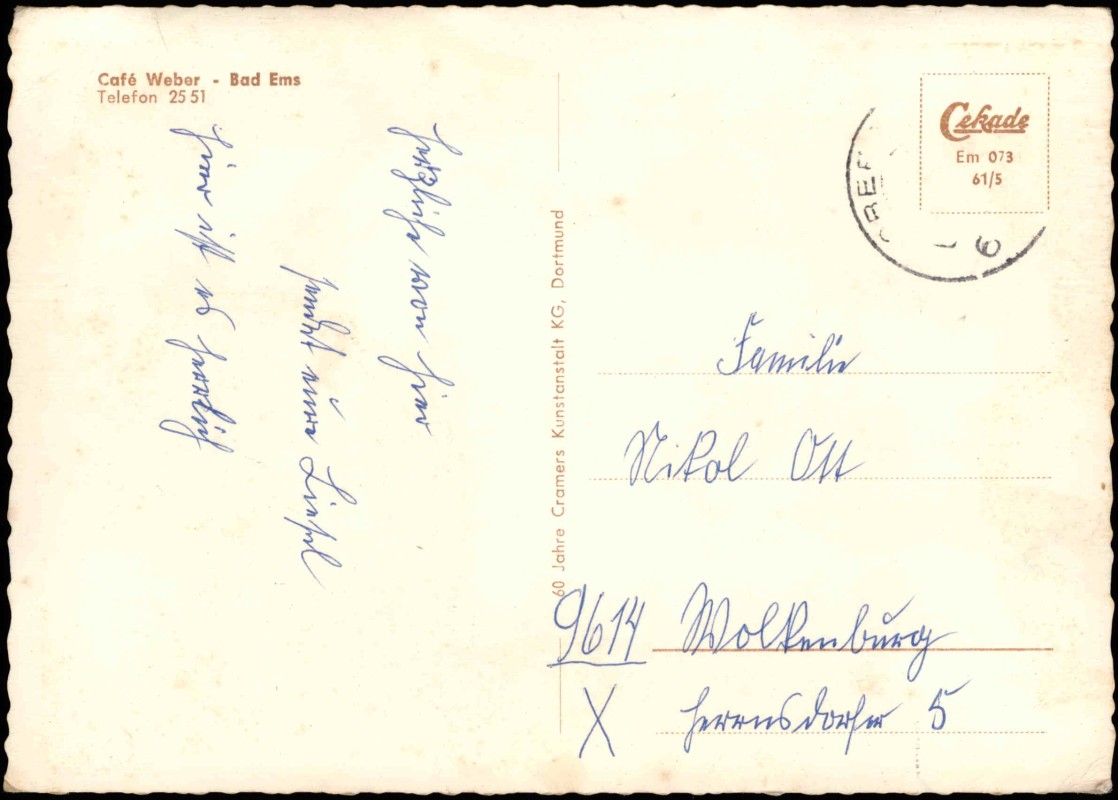 Café Weber - Bad Ems
Telefon 25 51
Herzliche von hier
sendet eure Liesel
hier ist es herrlich
60 Jahre Cramers Kunstanstalt KG, Dortmund
Cekade
Em 073
61/5
6
Familie
Nikol Ott
9614 Wolkenburg
X Herrnsdorfer 5